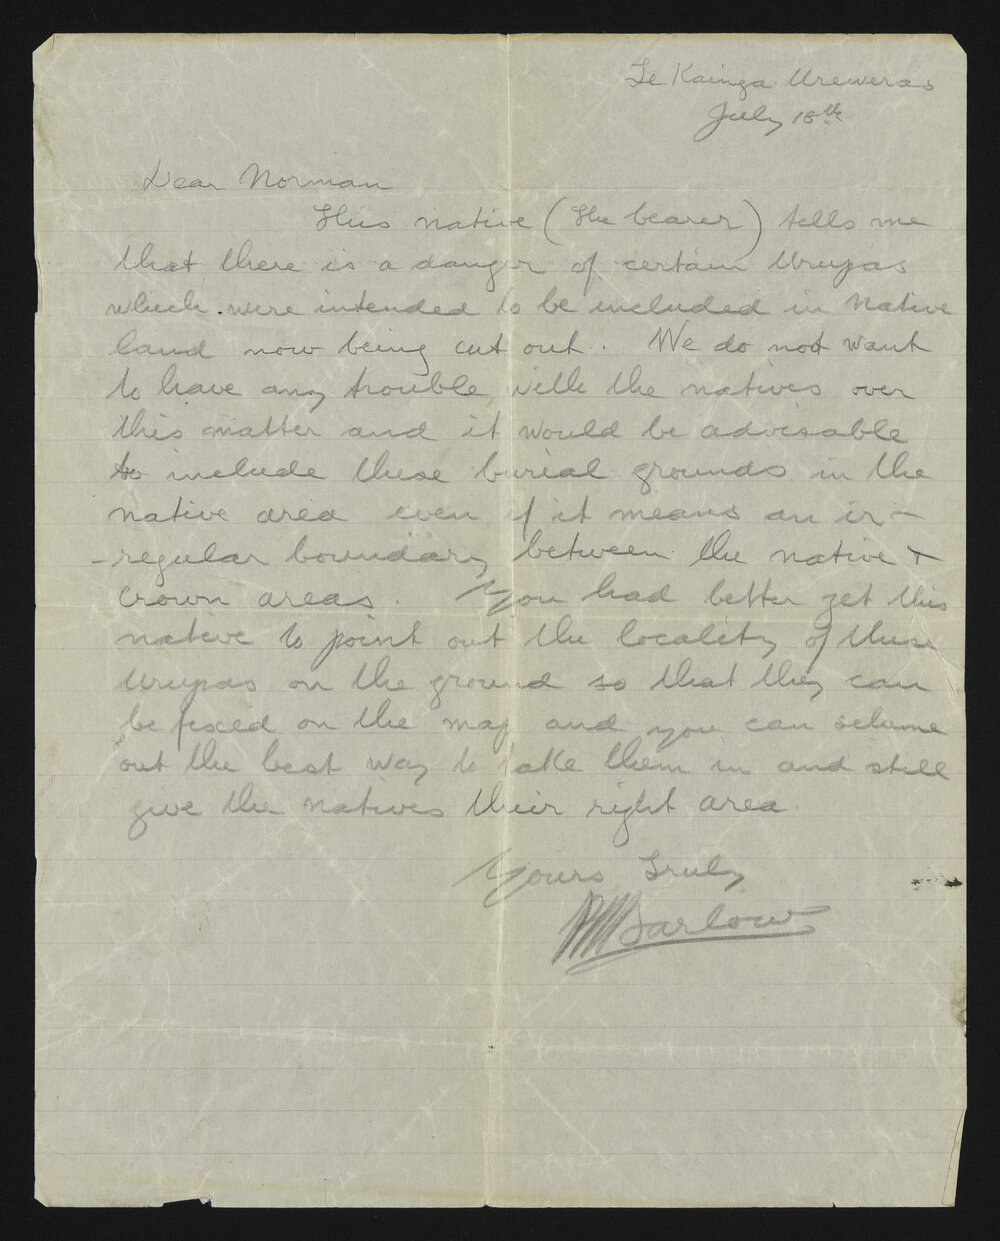 Te Kainga Ureweras
July 18th
Dear Norman
This native (the bearer) tells me
that there is a danger of certain Urupas
which were intended to be included in Native
land now being cut out. We do not want
to have any trouble with the natives over
this matter and it would be advisable
to include these burial grounds in the
native area even if it means an ir-
-regular boundary between the native +
Crown areas. You had better get this
native to point out the locality of these
Urupas on the ground so that they can
be fixed on the map and you can scheme
out the best way to take them in and still
give the natives their right area.
Yours Truly
Barlow